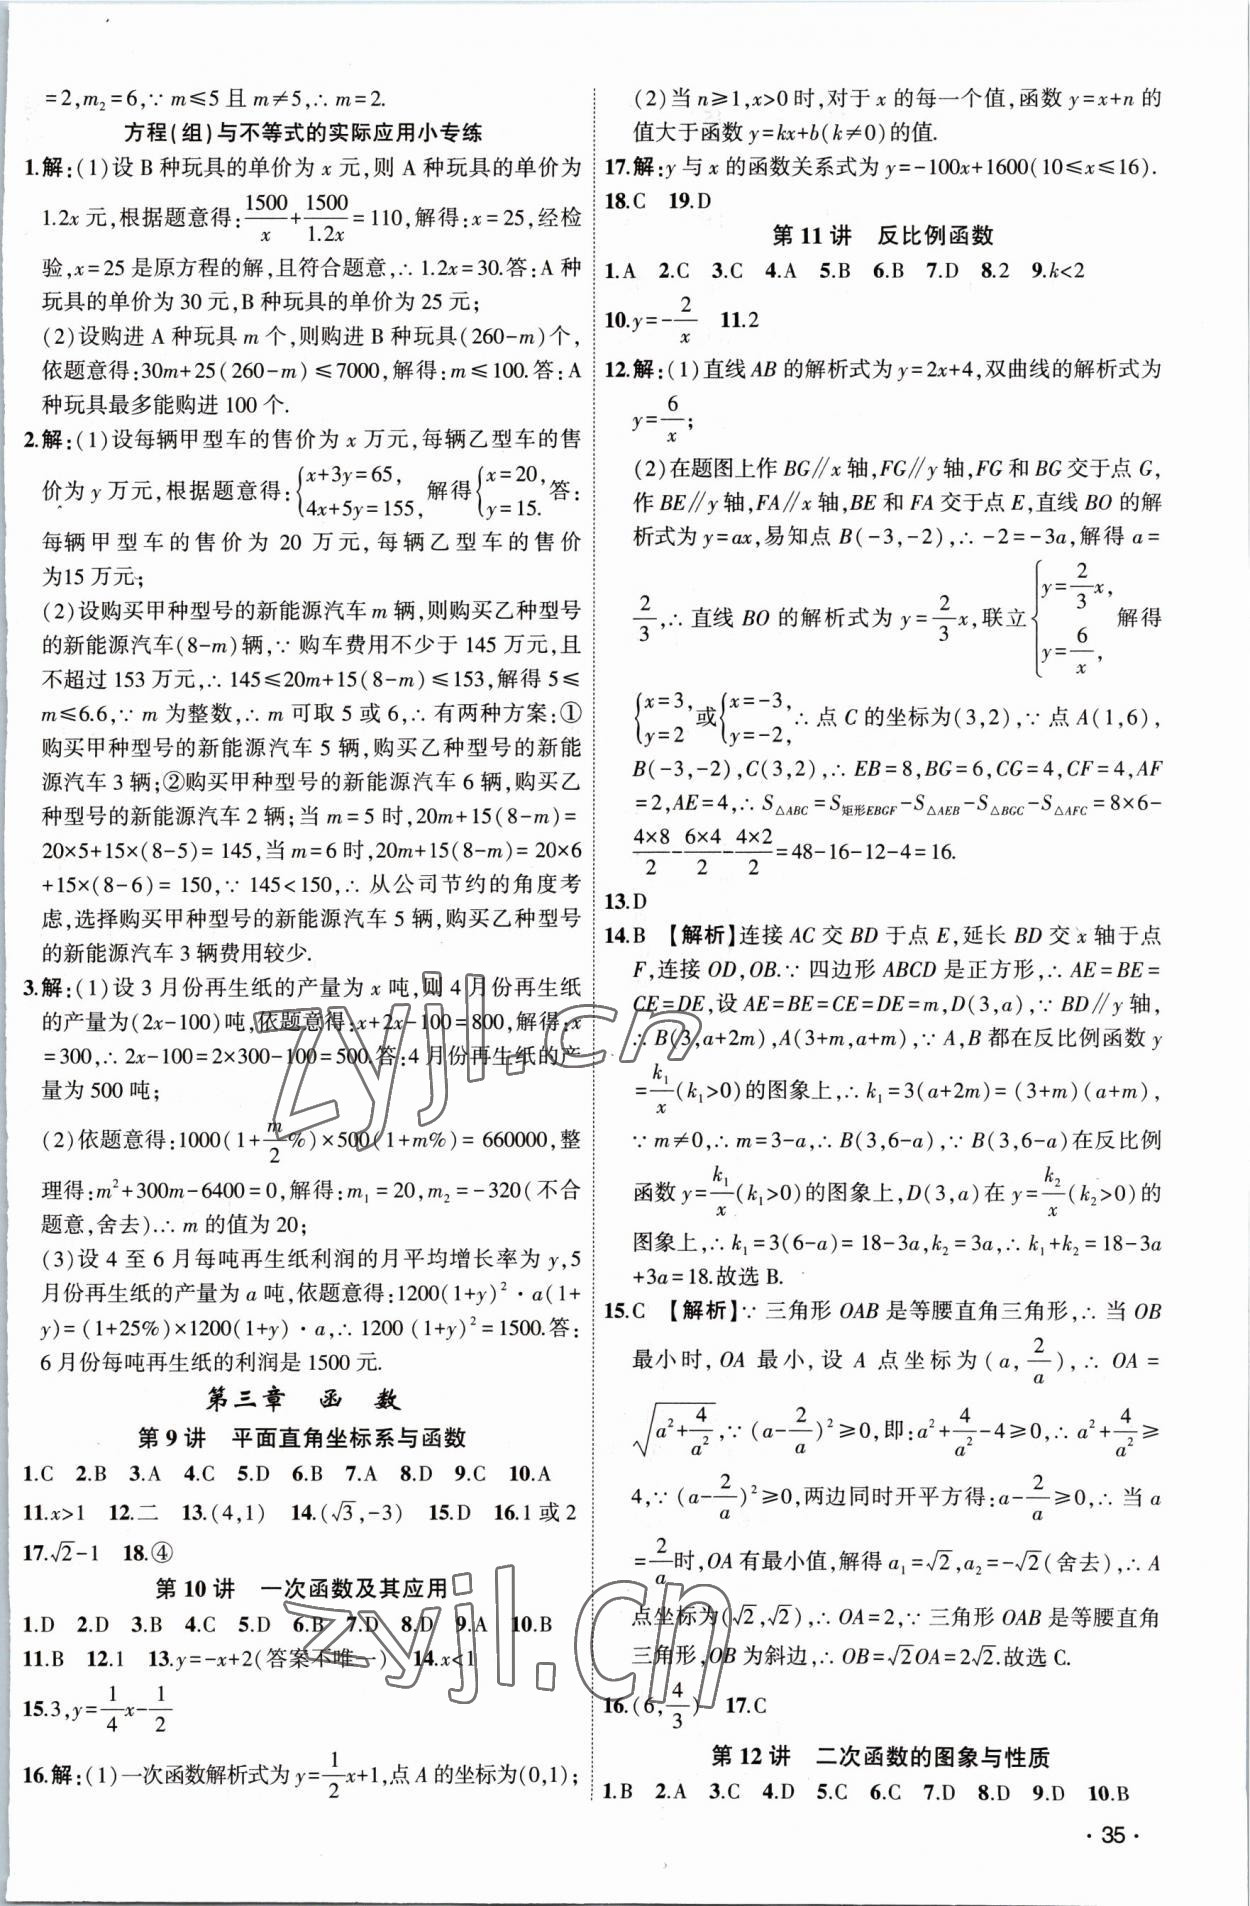 =2,m₂=6,∵ m≤5 且 m≠5,∴ m=2.
方程(组)与不等式的实际应用小专练
1.解:(1)设 B 种玩具的单价为 x 元,则 A 种玩具的单价为
1.2x 元,根据题意得:1500/x+1500/1.2x=110,解得:x=25,经检
验,x=25 是原方程的解,且符合题意,∴ 1.2x=30.答:A 种
玩具的单价为 30 元,B 种玩具的单价为 25 元;
(2)设购进 A 种玩具 m 个,则购进 B 种玩具(260-m)个,
依题意得:30m+25(260-m)≤7000,解得:m≤100.答:A
种玩具最多能购进 100 个.
2.解:(1)设每辆甲型车的售价为 x 万元,每辆乙型车的售
价为 y 万元,根据题意得:{x+3y=65, 4x+5y=155, 解得{x=20, y=15. 答:
每辆甲型车的售价为 20 万元,每辆乙型车的售价
为15 万元;
(2)设购买甲种型号的新能源汽车 m 辆,则购买乙种型号
的新能源汽车(8-m)辆,∵ 购车费用不少于 145 万元,且
不超过 153 万元,∴ 145≤20m+15(8-m)≤153,解得 5≤
m≤6.6,∵ m 为整数,∴ m 可取 5 或 6,∴ 有两种方案:①
购买甲种型号的新能源汽车 5 辆,购买乙种型号的新能
源汽车 3 辆;②购买甲种型号的新能源汽车 6 辆,购买乙
种型号的新能源汽车 2 辆;当 m=5 时,20m+15(8-m)=
20×5+15×(8-5)=145,当 m=6 时,20m+15(8-m)=20×6
+15×(8-6)=150,∵ 145<150,∴ 从公司节约的角度考
虑,选择购买甲种型号的新能源汽车 5 辆,购买乙种型号
的新能源汽车 3 辆费用较少.
3.解:(1)设 3 月份再生纸的产量为 x 吨,则 4 月份再生纸
的产量为(2x-100)吨,依题意得:x+2x-100=800,解得:x
=300,∴ 2x-100=2×300-100=500.答:4 月份再生纸的产
量为 500 吨;
(2)依题意得:1000(1+m/2%)×500(1+m%)=660000,整
理得:m²+300m-6400=0,解得:m₁=20,m₂=-320(不合
题意,舍去).∴ m 的值为 20;
(3)设 4 至 6 月每吨再生纸利润的月平均增长率为 y,5
月份再生纸的产量为 a 吨,依题意得:1200(1+y)²·a(1+
y)=(1+25%)×1200(1+y)·a,∴ 1200(1+y)²=1500.答:
6 月份每吨再生纸的利润是 1500 元.
第三章 函 数
第 9 讲 平面直角坐标系与函数
1.C 2.B 3.A 4.C 5.D 6.B 7.A 8.D 9.C 10.A
11.x>1 12.二 13.(4,1) 14.(√3,-3) 15.D 16.1 或 2
17.√2-1 18.④
第 10 讲 一次函数及其应用
1.D 2.D 3.B 4.C 5.D 6.B 7.D 8.D 9.A 10.B
11.B 12.1 13.y=-x+2(答案不唯一) 14.x<1
15.3,y=1/4x-1/2
16.解:(1)一次函数解析式为 y=1/2x+1,点 A 的坐标为(0,1);
(2)当 n≥1,x>0 时,对于 x 的每一个值,函数 y=x+n 的
值大于函数 y=kx+b(k≠0)的值.
17.解:y 与 x 的函数关系式为 y=-100x+1600(10≤x≤16).
18.C 19.D
第 11 讲 反比例函数
1.A 2.C 3.C 4.A 5.B 6.B 7.D 8.2 9.k<2
10.y=-2/x 11.2
12.解:(1)直线 AB 的解析式为 y=2x+4,双曲线的解析式为
y=6/x;
(2)在题图上作 BG∥x 轴,FG∥y 轴,FG 和 BG 交于点 G,
作 BE∥y 轴,FA∥x 轴,BE 和 FA 交于点 E,直线 BO 的解
析式为 y=ax,易知点 B(-3,-2),∴ -2=-3a,解得 a=
2/3,∴ 直线 BO 的解析式为 y=2/3x,联立{y=2/3x, y=6/x, 解得
{x=3, y=2 或{x=-3, y=-2, ∴ 点 C 的坐标为(3,2),∵ 点 A(1,6),
B(-3,-2),C(3,2),∴ EB=8,BG=6,CG=4,CF=4,AF
=2,AE=4,∴ S△ABC=S矩形EBGF-S△AEB-S△BGC-S△AFC=8×6-
4×8/2-6×4/2-4×2/2=48-16-12-4=16.
13.D
14.B 【解析】连接 AC 交 BD 于点 E,延长 BD 交 x 轴于点
F,连接 OD,OB.∵ 四边形 ABCD 是正方形,∴ AE=BE=
CE=DE,设 AE=BE=CE=DE=m,D(3,a),∵ BD∥y 轴,
∴ B(3,a+2m),A(3+m,a+m),∵ A,B 都在反比例函数 y
=k₁/x(k₁>0)的图象上,∴ k₁=3(a+2m)=(3+m)(a+m),
∵ m≠0,∴ m=3-a,∴ B(3,6-a),∵ B(3,6-a)在反比例
函数 y=k₁/x(k₁>0)的图象上,D(3,a)在 y=k₂/x(k₂>0)的
图象上,∴ k₁=3(6-a)=18-3a,k₂=3a,∴ k₁+k₂=18-3a
+3a=18.故选 B.
15.C 【解析】∵ 三角形 OAB 是等腰直角三角形,∴ 当 OB
最小时,OA 最小,设 A 点坐标为(a,2/a),∴ OA=
√(a²+4/a²),∵ (a-2/a)²≥0,即:a²+4/a²-4≥0,∴ a²+4/a²≥
4,∵ (a-2/a)²≥0,两边同时开平方得:a-2/a≥0,∴ 当 a
=2/a时,OA 有最小值,解得 a₁=√2,a₂=-√2(舍去),∴ A
点坐标为(√2,√2),∴ OA=2,∵ 三角形 OAB 是等腰直角
三角形,OB 为斜边,∴ OB=√2OA=2√2.故选 C.
16.(6,4/3) 17.C
第 12 讲 二次函数的图象与性质
1.B 2.A 3.C 4.D 5.C 6.C 7.D 8.D 9.D 10.B
·35·
zyjl.cn
zyjl.cn